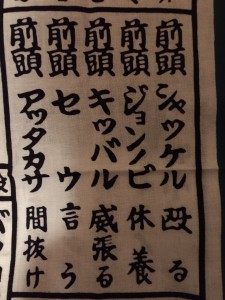 前頭 シャツケル 殴る
前頭 ジョンノビ 休養
前頭 キツバル 威張る
前頭 セウ 言う
前頭 アッタカサ 間抜け